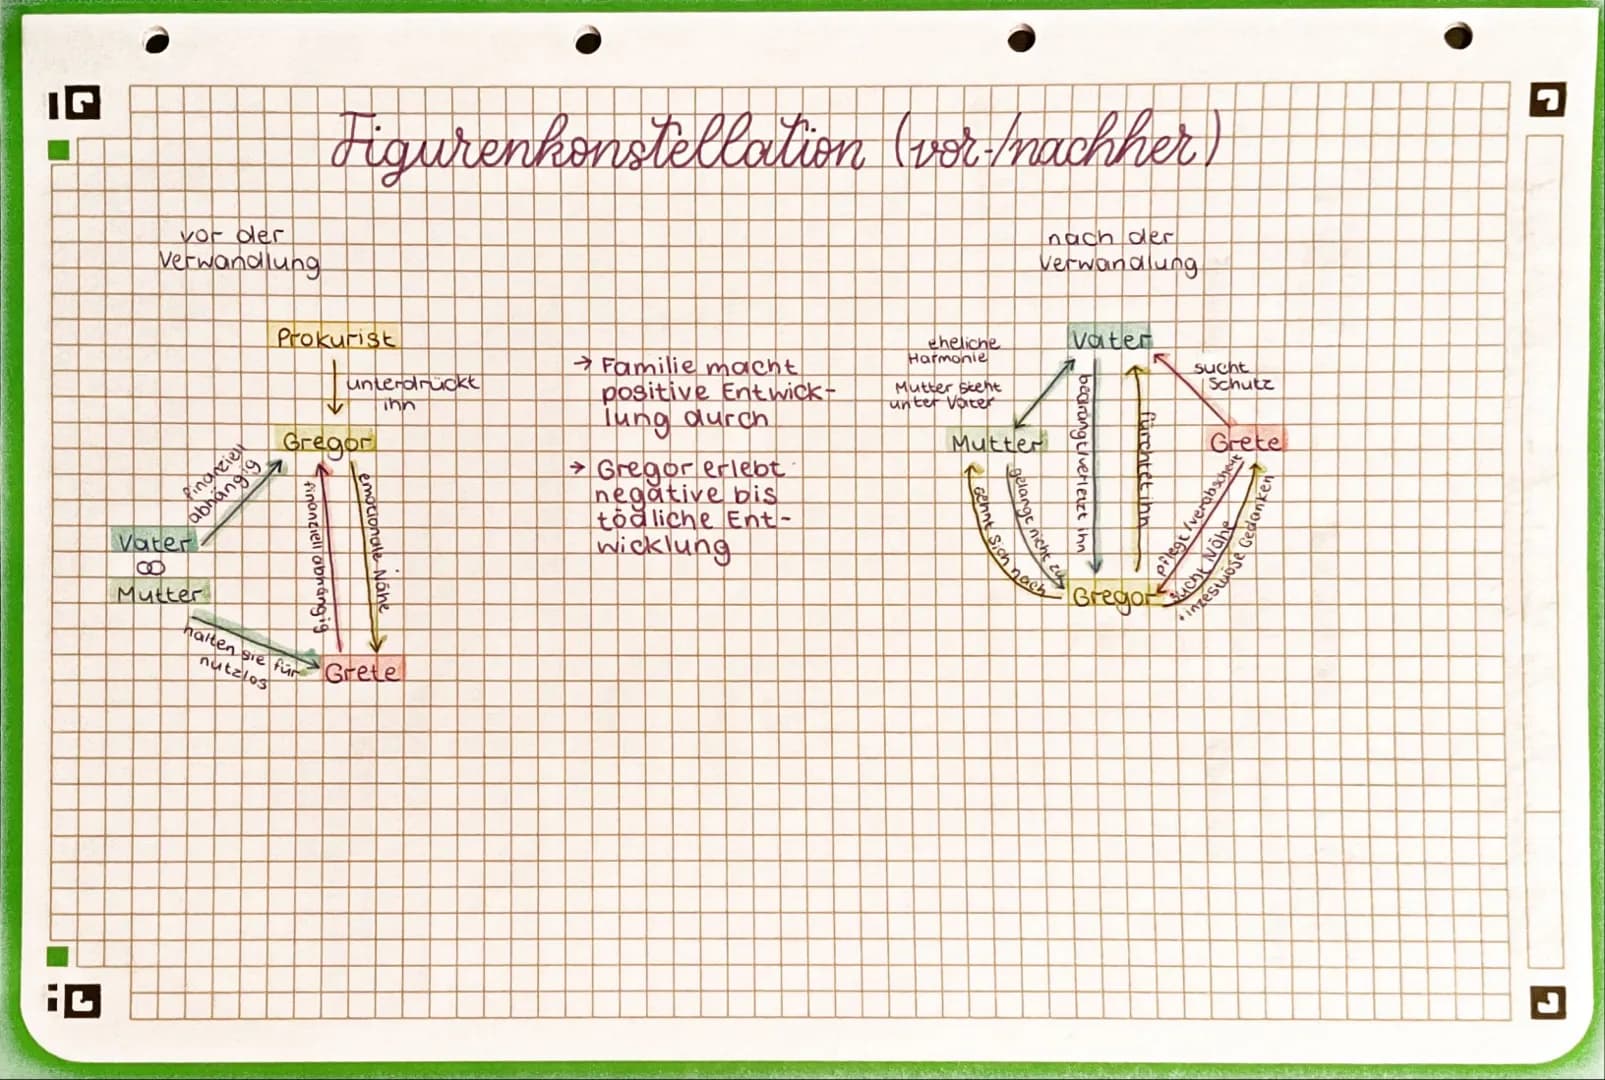 Figurenkonstellation (vor-/nachher)
vor der
Verwandlung
Prokurist
unterdrückt
ihn
Gregor
finanziell
abhängig
finanziell abhängig
emotionale Nähe
Vater
Mutter
halten sie für
nutzlos
Grete
→ Familie macht
positive Entwick-
lung durch
→ Gregor erlebt
negative bis
tödliche Ent-
wicklung
nach der
Verwandlung
Vater
eheliche
Harmonie
Mutter steht
unter Vater
sucht
Schutz
Mutter
Grete
sehnt sich nach
gelangt nicht zu
bedrängt/verletzt ihn
fürchtet ihn
pflegt/verabscheut
sucht Nähe
inzestuöse Gedanken
Gregor